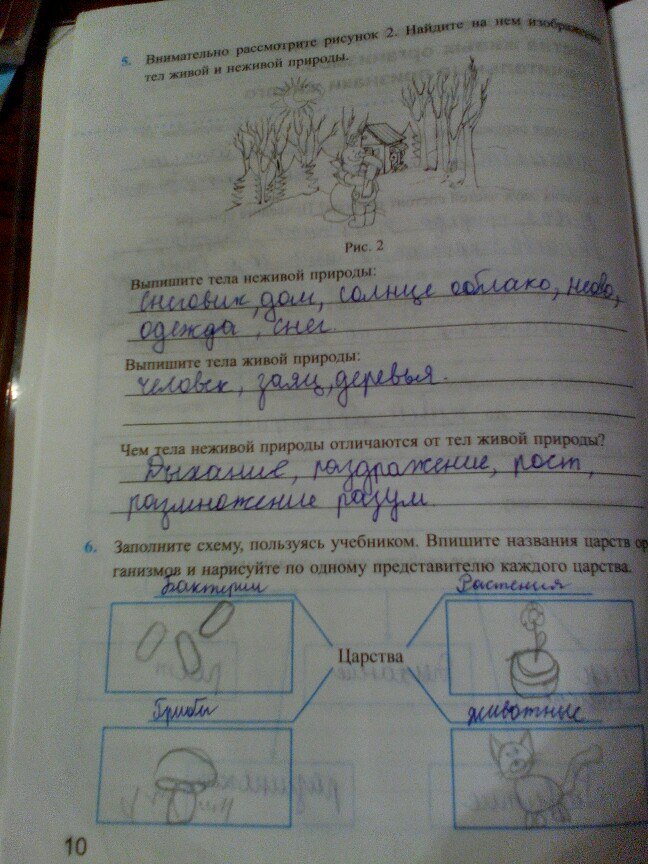 5. Внимательно рассмотрите рисунок 2. Найдите на нем изображения
тел живой и неживой природы.
Рис. 2
Выпишите тела неживой природы:
Снеговик, дом, солнце облако, небо,
одежда, снег.
Выпишите тела живой природы:
Человек, заяц, деревья.
Чем тела неживой природы отличаются от тел живой природы?
Дыхание, раздражение, рост,
размножение разум.
6. Заполните схему, пользуясь учебником. Впишите названия царств ор
ганизмов и нарисуйте по одному представителю каждого царства.
Бактерии Растения
Царства
Грибы животные
10